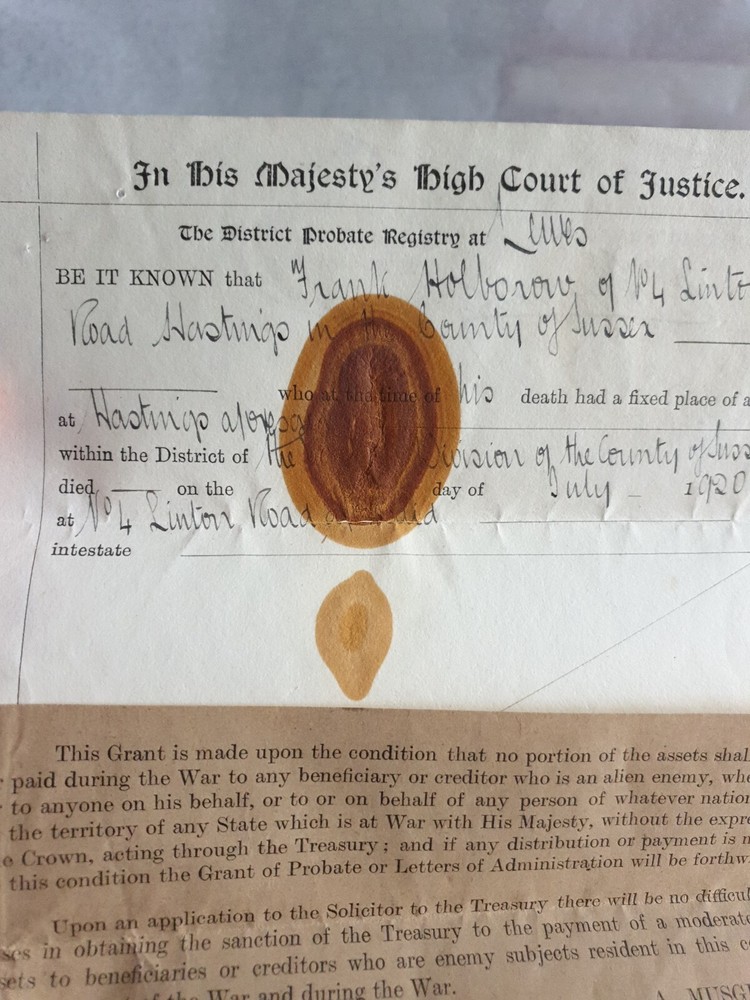 In His Majesty's High Court of Justice.
The District Probate Registry at Lewes
BE IT KNOWN that Frank Holborow of No 4 Linto
Road Hastings in the County of Sussex
who at the time of his death had a fixed place of a
at Hastings afores
within the District of the Division of the County of Suss
died on the day of July 1920
at No 4 Linton Road
intestate
This Grant is made upon the condition that no portion of the assets shal
paid during the War to any beneficiary or creditor who is an alien enemy, whe
to anyone on his behalf, or to or on behalf of any person of whatever nation
the territory of any State which is at War with His Majesty, without the expre
e Crown, acting through the Treasury; and if any distribution or payment is m
this condition the Grant of Probate or Letters of Administration will be forthw
Upon an application to the Solicitor to the Treasury there will be no difficul
ses in obtaining the sanction of the Treasury to the payment of a moderate
sets to beneficiaries or creditors who are enemy subjects resident in this co
of the War and during the War.
A. MUSG